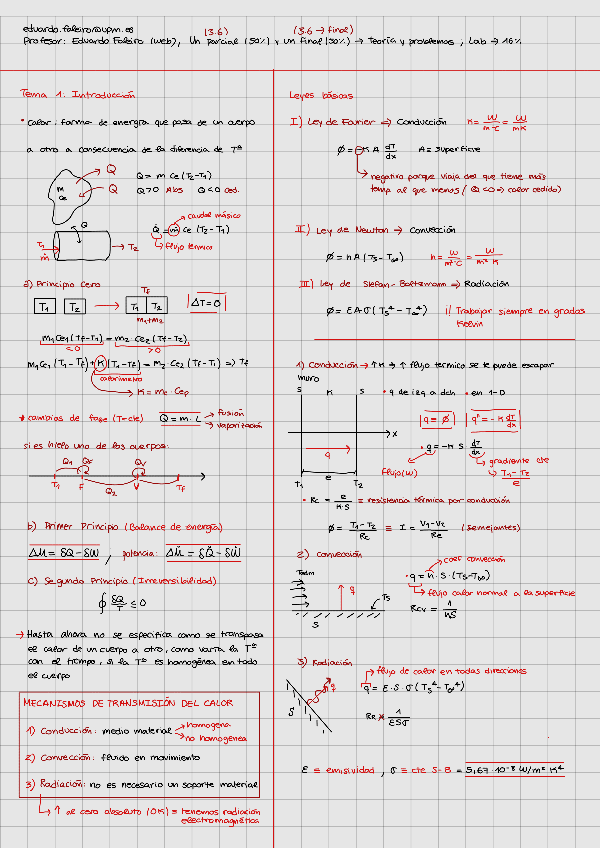 eduardo.faleiro@upm.es (3.6) (3.6 → final)
Profesor: Eduardo Faleiro (web), Un parcial (50%) y un final (30%) → Teoría y problemas, Lab → 16%
Tema 1. Introducción
• Calor: forma de energía que pasa de un cuerpo
a otro a consecuencia de la diferencia de Tª
m
ce
Q
Q
Q = m ce (T2-T1)
Q>0 Abs Q<0 ced.
caudal másico
Q
T1
ṁ
→ T2
Q̇ = ṁ ce (T2-T1)
flujo térmico
a) Principio Cero
T1 T2 → T1 T2
Tf
m1+m2
ΔT=0
m1 ce1 (Tf-T1) = m2 ce2 (Tf-T2)
<0 >0
m1 ce1 (T1-Tf) + K (T1-Tf) = m2 ce2 (Tf-T2) ⇒ Tf
calorímetro
→ K = mc · cep
* cambios de fase (T=cte) Q = m · L → fusión
→ vaporización
si es hielo uno de los cuerpos:
Q1 QF QV
T1 F Q2 V Tf
b) Primer Principio (Balance de energía)
ΔU = δQ - δW, potencia: ΔU̇ = δQ̇ - δẆ
c) Segundo Principio (Irreversibilidad)
∮ δQ/T ≤ 0
→ Hasta ahora no se especifica como se transpasa
el calor de un cuerpo a otro, como varía la Tª
con el tiempo, si la Tª es homogénea en todo
el cuerpo
MECANISMOS DE TRANSMISIÓN DEL CALOR
1) Conducción: medio material → homogéneo
→ no homogénea
2) Convección: fluido en movimiento
3) Radiación: no es necesario un soporte material
→ ↑ al cero absoluto (0K) = tenemos radiación
electromagnética
Leyes básicas
I) Ley de Fourier → Conducción K = W/m·ºC = W/mK
ϕ = -K A dT/dx A = superficie
negativo porque viaja del que tiene más
temp al que menos (Q<0 → calor cedido)
II) Ley de Newton → Convección
ϕ = h A (Ts - T∞) h = W/m²ºC = W/m²K
III) Ley de Stefan-Boltzmann → Radiación
ϕ = E A σ (Ts⁴ - T∞⁴) !! Trabajar siempre en grados
Kelvin
1) Conducción → ↑K → ↑ flujo térmico se te puede escapar
muro
S K S
• q de izq a dch • en 1-D
q = ϕ q" = -K dT/dx
x
q
• q = -K S dT/dx
flujo(W)
gradiente cte
T1-T2/e
e
T1 T2
• Rc = e/K·S = resistencia térmica por conducción
ϕ = T1-T2/Rc ≡ I = V1-V2/Re (semejantes)
2) Convección
coef convección
T∞
q
Ts
S
• q = h · S · (Ts-T∞)
flujo calor normal a la superficie
Rcv = 1/hS
3) Radiación
flujo de calor en todas direcciones
S
q
q = E · S · σ (Ts⁴ - T∞⁴)
1/ESσ
E ≡ emisividad, σ ≡ cte S-B = 5,67·10⁻⁸ W/m² K⁴